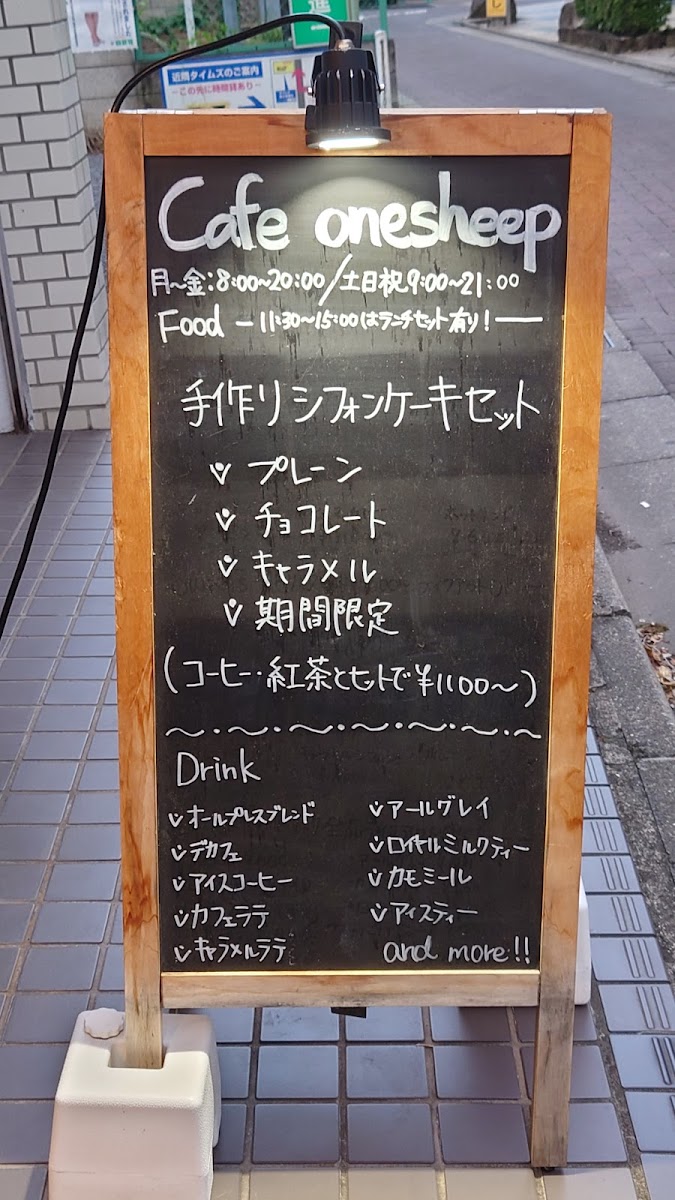 近隣タイムズのご案内
ーこの先に時間貸ありー
Cafe onesheep
月~金:8:00~20:00/土日祝9:00~21:00
Food ー11:30~15:00はランチセット有り!ー
手作りシフォンケーキセット
プレーン
チョコレート
キャラメル
期間限定
(コーヒー・紅茶とセットで¥1100~)
Drink
オールプレスブレンド
デカフェ
アイスコーヒー
カフェラテ
キャラメルラテ
アールグレイ
ロイヤルミルクティー
カモミール
アイスティー
and more!!